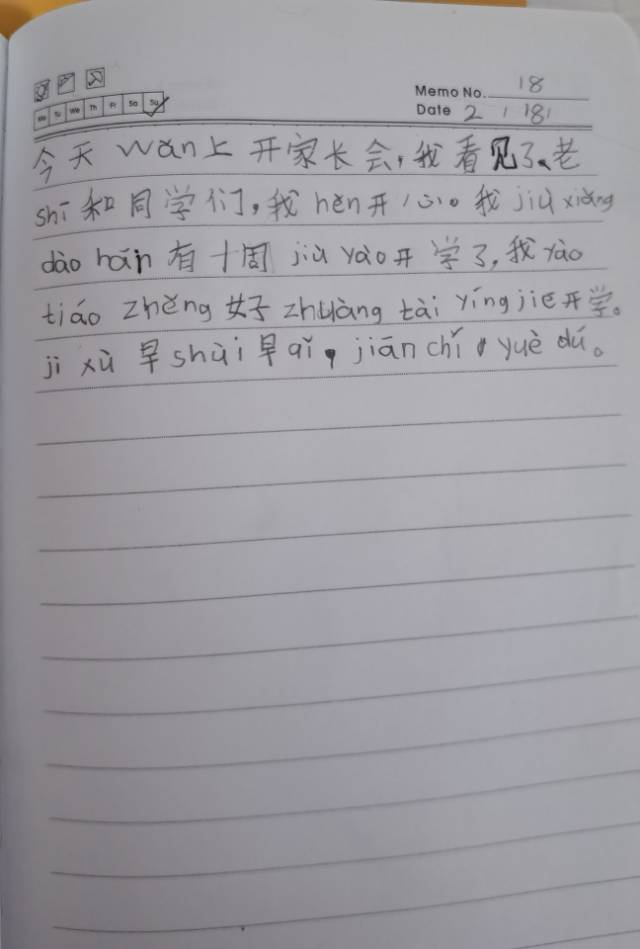 Memo No. 18
Mo Tu We Th Fr Sa Su
Date 2 / 18 /
今天wǎn上开家长会，我看见了、老
shī和同学们，我hěn开心。我jiù xiǎng
dào hái 有十周jiù yào开学了，我yào
tiáo zhěng好zhuàng tài yíng jiē开学。
jì xù早shùi早qǐ，jiān chí yuè dú。